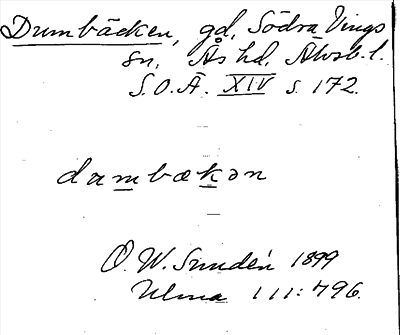 Dumbäcken, gd, Södra Vings
sn, Ås hd, Älvsb. l.
S.O.Ä. XIV s. 172.
dambækən
O. W. Sundén 1899
Ulma 111:796.